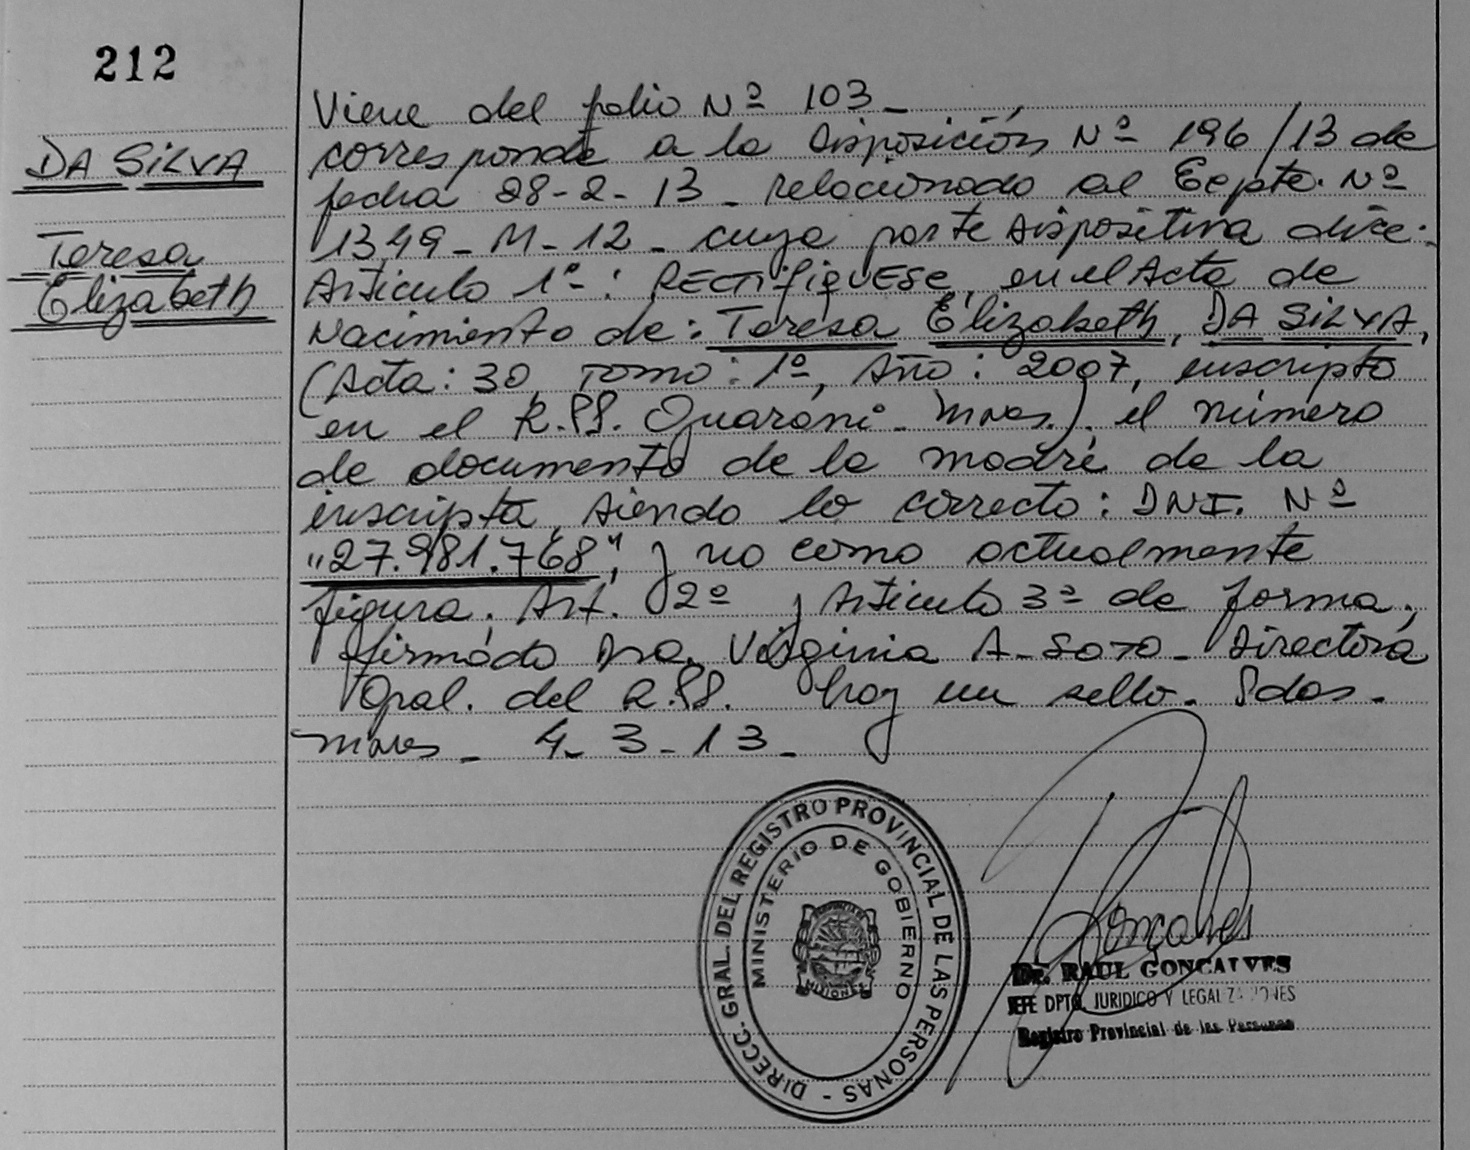 212
DA SILVA
Teresa
Elizabeth
Viene del folio Nº 103_
corresponde a la Disposición Nº 196/13 de
fecha 28-2-13_ relacionado al Expte. Nº
1349_M_12_ cuya parte dispositiva dice:
Artículo 1º: RECTIFIQUESE, en el Acta de
Nacimiento de: Teresa Elizabeth, DA SILVA,
(Acta: 30, Tomo: 1º, Año: 2007, inscripto
en el R.PP. Guaraní- Mnes.), el número
de documento de la madre de la
inscripta, siendo lo correcto: DNI. Nº
"27.981.768", y no como actualmente
figura. Art. 2º y Artículo 3º de forma.
firmado Dra. Virginia A_Soto_Directora
Gral. del R.PP. hay un sello. Pdas.
Mnes_ 4-3-13_
DIRECC. GRAL. DEL REGISTRO PROVINCIAL DE LAS PERSONAS -
MINISTERIO DE GOBIERNO
MISIONES
Goncalves
Dr. RAUL GONCALVES
JEFE DPTO. JURIDICO Y LEGALIZACIONES
Registro Provincial de las Personas